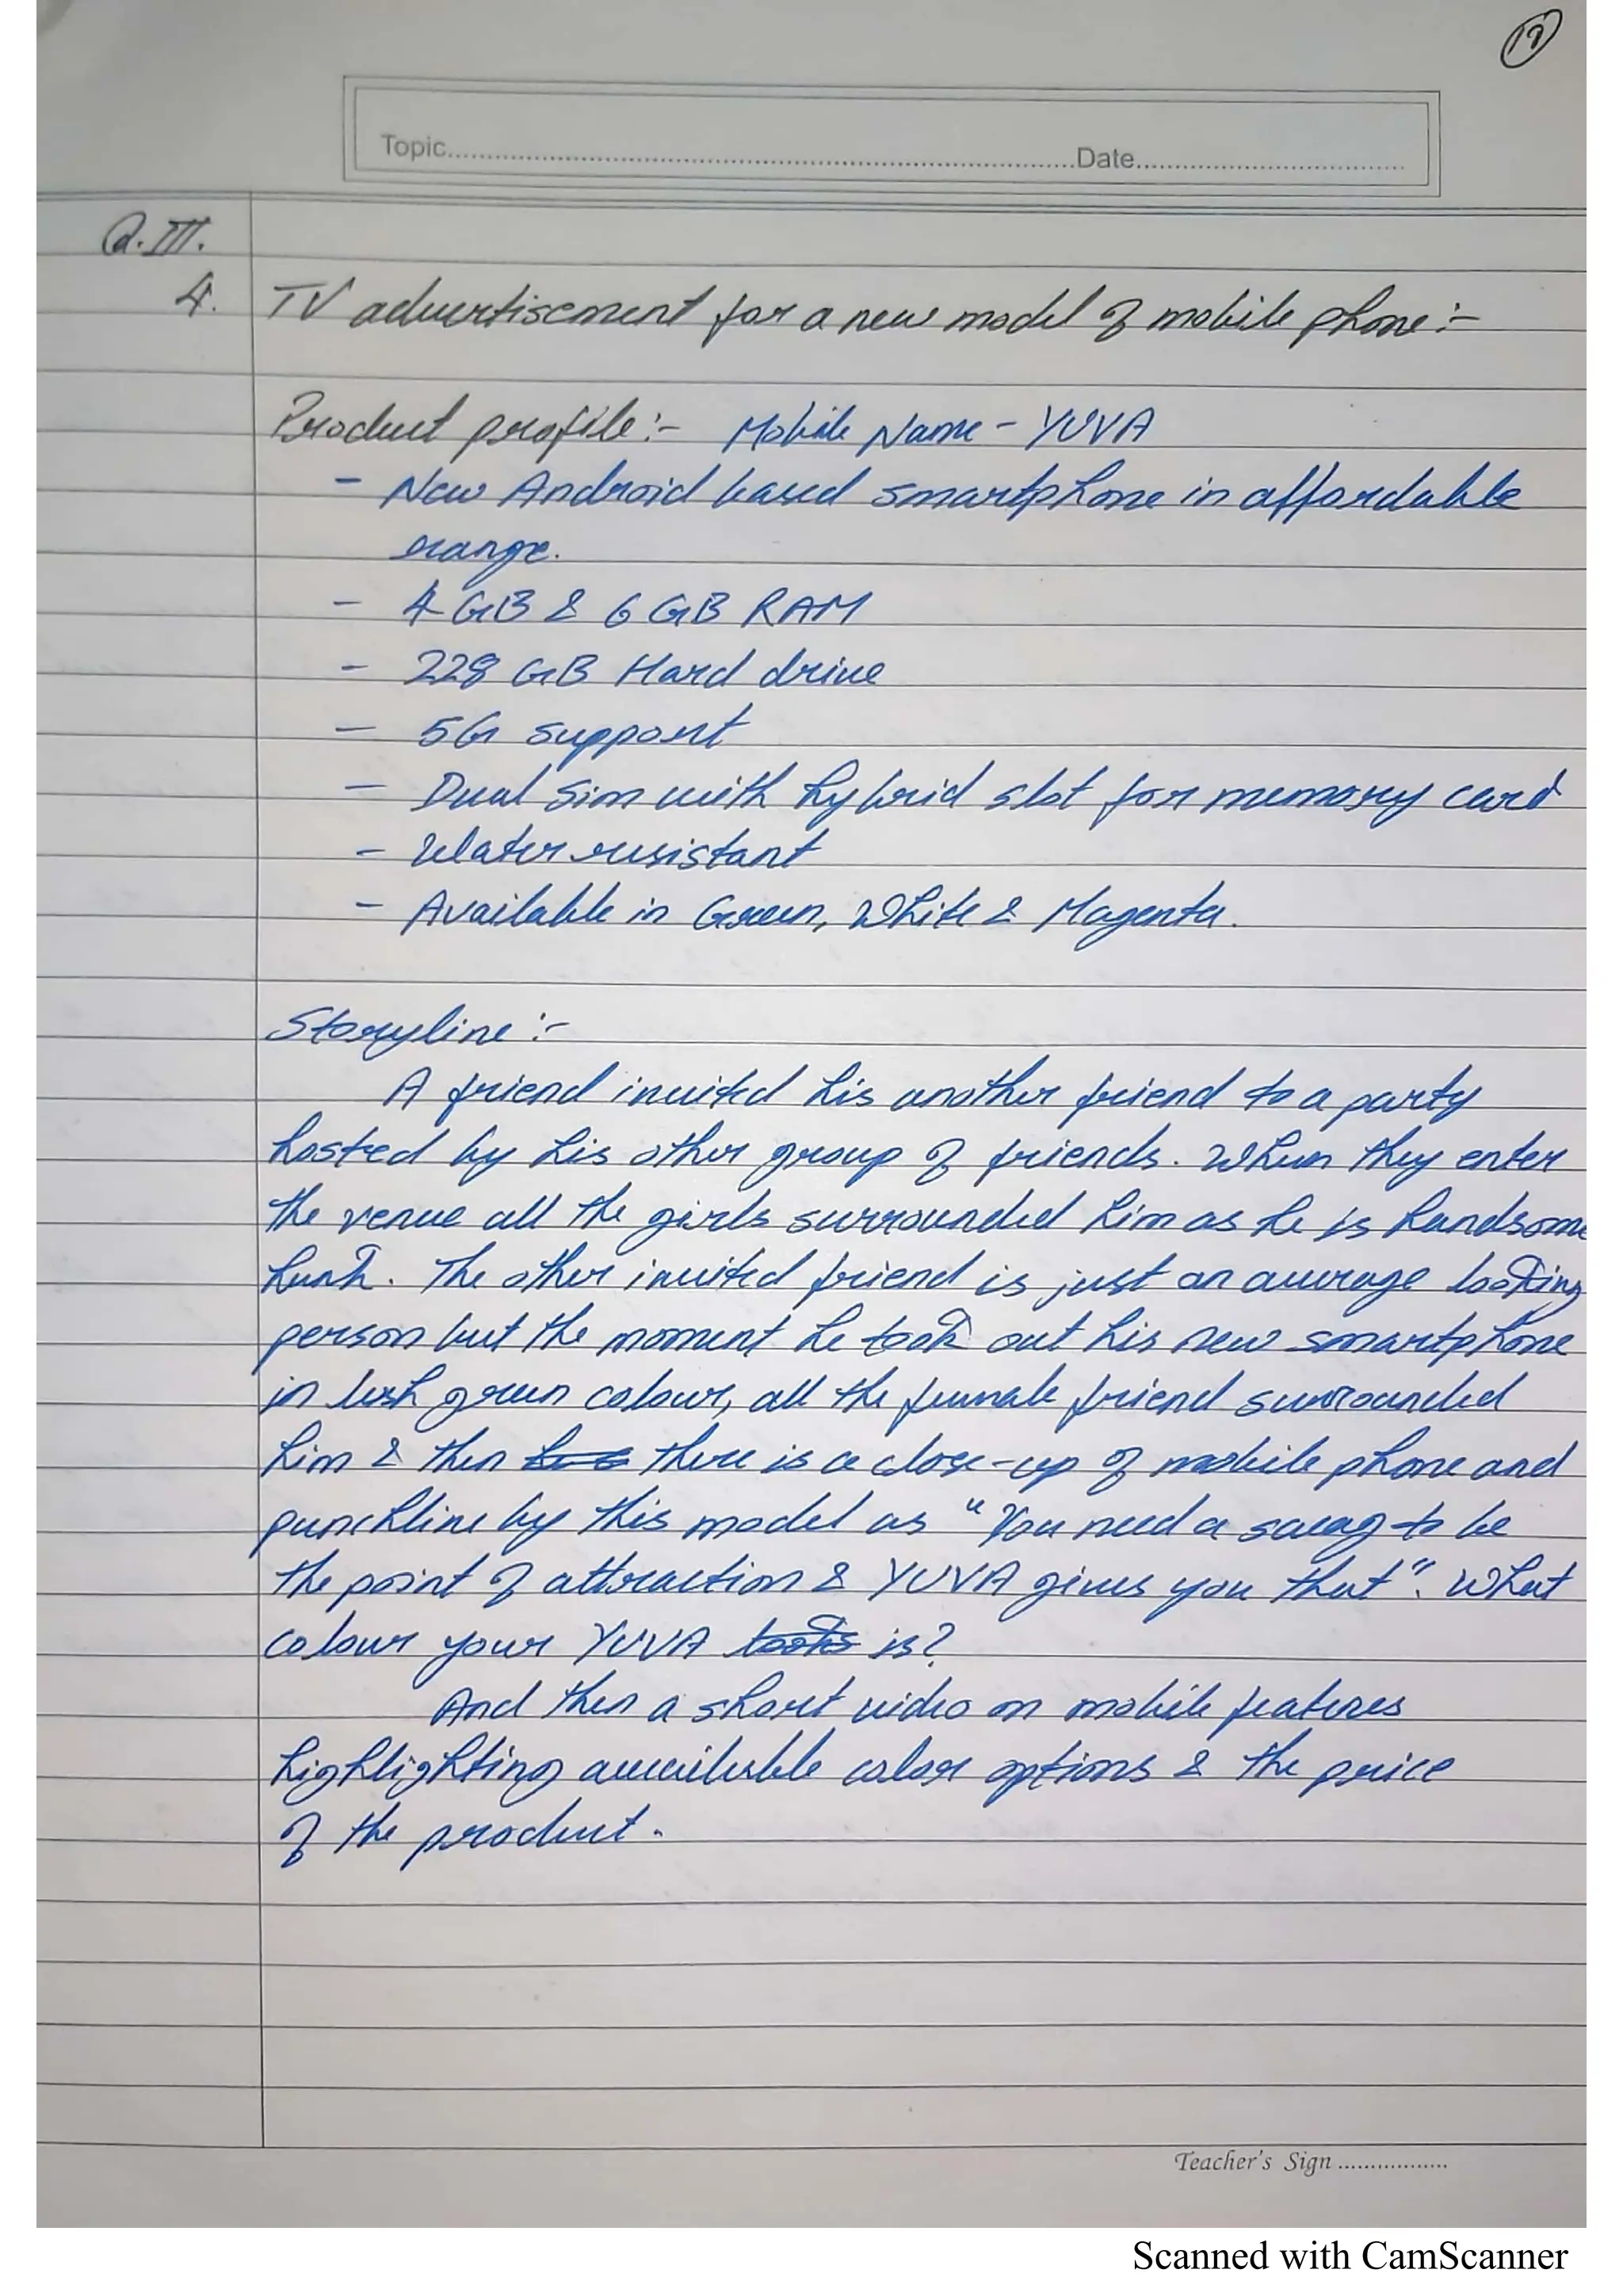 Topic..........Date..........
Q.III.
4. TV advertisement for a new model of mobile phone:-
Product profile:- Mobile Name - YUVA
- New Android based smartphone in affordable
range.
- 4 GB & 6 GB RAM
- 228 GB Hard drive
- 5G support
- Dual Sim with hybrid slot for memory card
- Water resistant
- Available in Green, White & Magenta.
Storyline:-
A friend invited his another friend to a party
hosted by his other group of friends. When they enter
the venue all the girls surrounded him as he is handsome
hunk. The other invited friend is just an average looking
person but the moment he took out his new smartphone
in lush green colour, all the female friend surrounded
him & then there is a close-up of mobile phone and
punchline by this model as "You need a swag to be
the point of attraction & YUVA gives you that". What
colour your YUVA looks is?
And then a short video on mobile features
highlighting available color options & the price
of the product.
Teacher's Sign ..........
Scanned with CamScanner